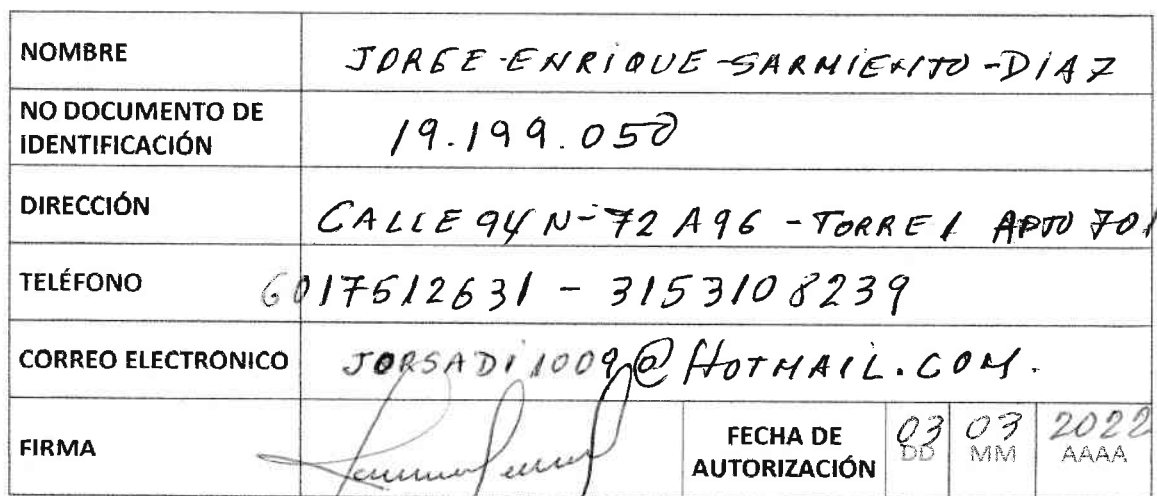 NOMBRE JORGE-ENRIQUE-SARMIENTO-DIAZ
NO DOCUMENTO DE
IDENTIFICACIÓN 19.199.050
DIRECCIÓN CALLE 94 N-72 A 96 - TORRE 1 APTO 701
TELÉFONO 6017512631 - 3153108239
CORREO ELECTRONICO JORSADI1009@HOTMAIL.COM.
FIRMA
FECHA DE
AUTORIZACIÓN
03 03 2022
DD MM AAAA